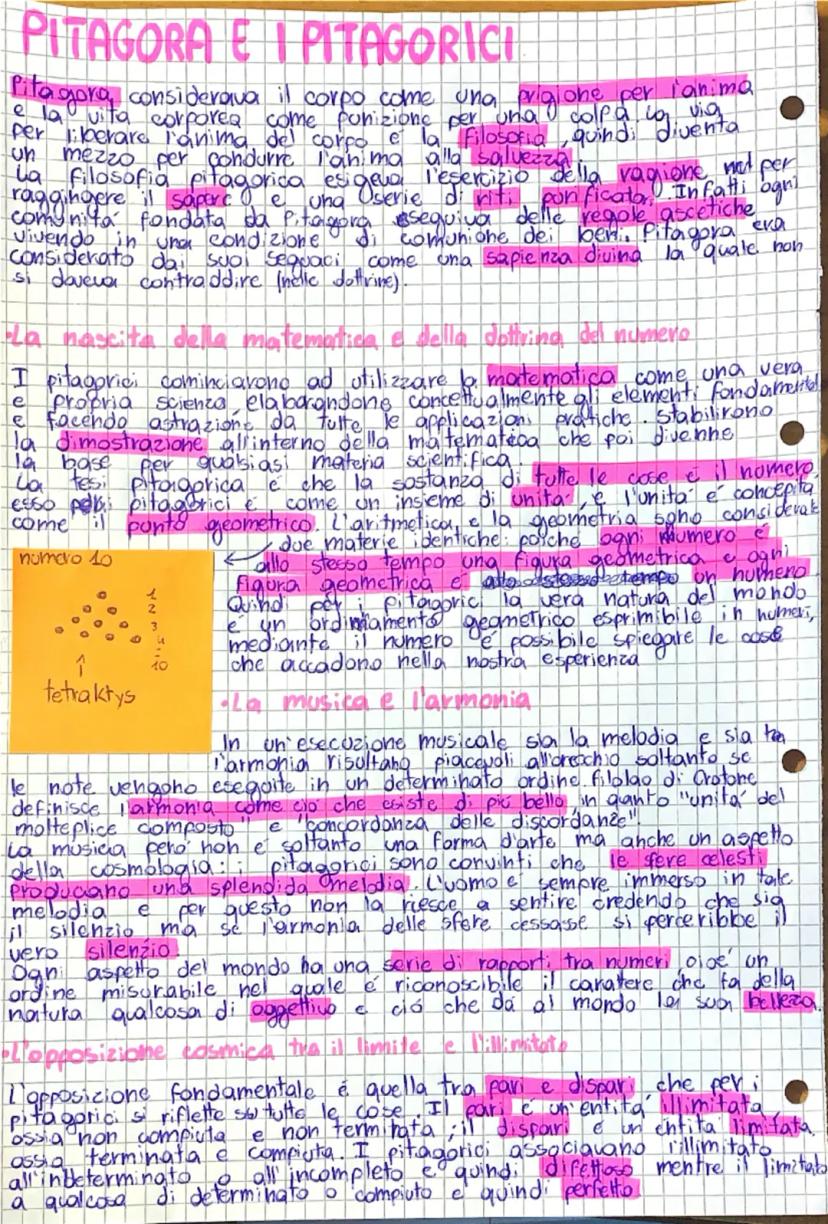 PITAGORA E I PITAGORICI
Pitagora considerava il corpo come una prigione per l'anima
e la vita corporea come punizione per una colpa la via
per liberare l'anima del corpo è la filosofia, quindi diventa
un mezzo per condurre l'anima alla salvezza.
La filosofia pitagorica esigeva l'esercizio della ragione per
raggingere il sapere e una serie di riti purificatori. Infatti ogni
comunità fondata da Pitagora eseguiva delle regole ascetiche
vivendo in una condizione di comunione dei beni. Pitagora era
considerato dai suoi seguaci come una sapienza divina la quale non
si doveva contraddire (nelle dottrine).
•La nascita della matematica e della dottrina del numero
I pitagorici cominciarono ad utilizzare la matematica come una vera
e propria scienza, elaborandone concettualmente gli elementi fondamentali
e facendo astrazione da tutte le applicazioni pratiche. stabilirono
la dimostrazione all'interno della matematica che poi divenne
la base per qualsiasi materia scientifica.
La tesi pitagorica è che la sostanza di tutte le cose è il numero,
esso per i pitagorici è come un insieme di unità, e l'unità è concepita
come il punto geometrico. L'aritmetica e la geometria sono considerate
due materie identiche: poiché ogni numero è
allo stesso tempo una figura geometrica e ogni
figura geometrica è un numero.
Quindi per i pitagorici la vera natura del mondo
è un ordinamento geometrico esprimibile in numeri,
mediante il numero è possibile spiegare le cose
che accadono nella nostra esperienza
numero 10
1
2
3
4
10
tetraktys
•La musica e l'armonia
In un'esecuzione musicale sia la melodia e sia
l'armonia risultano piacevoli all'orecchio soltanto se
le note vengono eseguite in un determinato ordine. filolao di Crotone
definisce l'armonia come ciò che esiste di più bello in quanto "unità del
molteplice composto" e "concordanza delle discordanze"
La musica però non è soltanto una forma d'arte ma anche un aspetto
della cosmologia: i pitagorici sono convinti che le sfere celesti
producano una splendida melodia. L'uomo è sempre immerso in tale
melodia e per questo non la riesce a sentire credendo che sia
il silenzio ma se l'armonia delle sfere cessasse si perceribbe il
vero silenzio.
Ogni aspetto del mondo ha una serie di rapporti tra numeri, cioè un
ordine misurabile nel quale è riconoscibile il carattere che fa della
natura qualcosa di oggettivo e ciò che dà al mondo la sua bellezza.
•L'opposizione cosmica tra il limite e l'illimitato
L'opposizione fondamentale è quella tra pari e dispari, che per i
pitagorici si riflette su tutte le cose. Il pari è un'entità illimitata,
ossia non compiuta e non terminata; il dispari è un entità limitata,
ossia terminata e compiuta. I pitagorici associavano l'illimitato
all'indeterminato o all'incompleto e quindi difettoso mentre il limitato
a qualcosa di determinato o compiuto e quindi perfetto